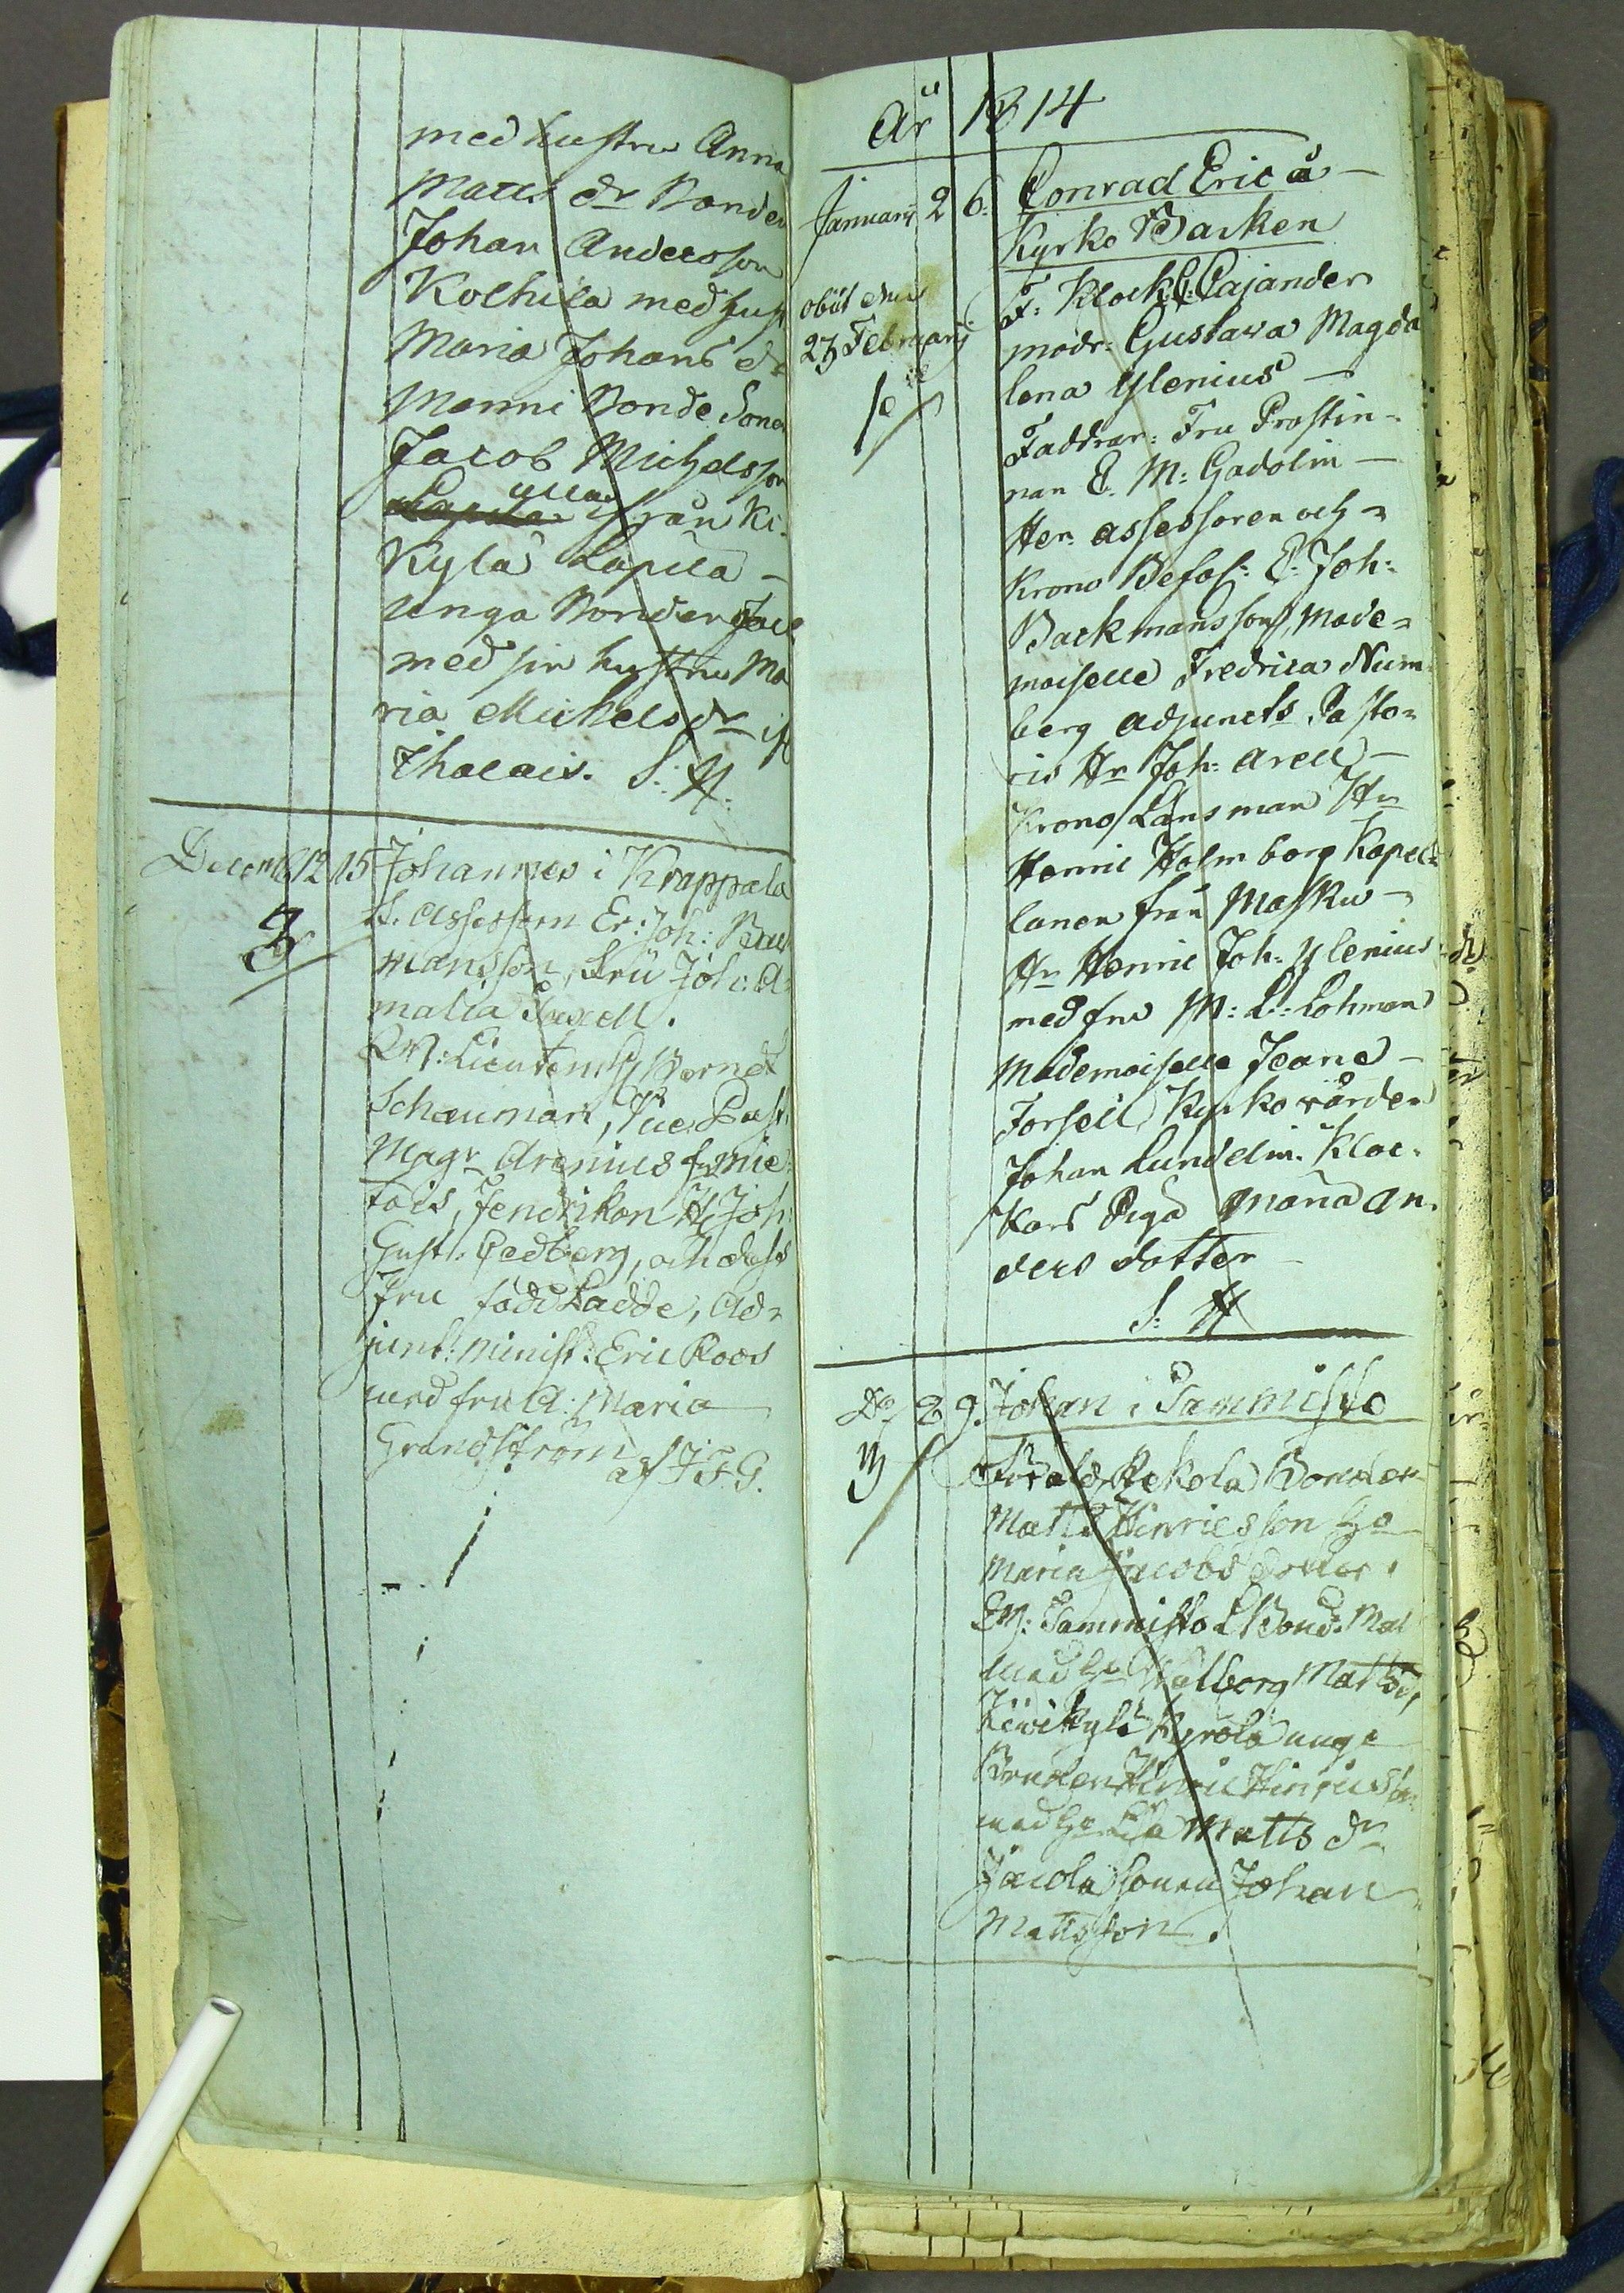 med hustru Anna
Matts dr Bonden
Johan Andersson
Kolhila med hust
Maria Johans dr
Manni Bonde Sonen
Jacob Michelsson
ifrån Ki-
Kyla Lapila -
unga Bonden Jac
med sin hustru Ma
ria Michels dr if
Thalais. S: H:
Decemb 12 15 Johannes i Krappala
F. Assessorn Er: Joh: Back
mansson, Fru Joh: A
malia
W: Lieuten: H Bernd
Schauman, Vice Past:
Magr Arenius från Mie
tois, Fendrikon H Joh:
Gust: Cedberg, och dess
Fru född Ladde, Ad-
junt: Minist: Eric Roos
med fru A: Maria
Grandström
af I. S. G.
År 1814
Januarii 2 6. Conrad Eric å -
Kyrko Backen
obiit den
23 Februarij
F: Klock: C Cajander
modr: Gustava Magda
lena Ylenius -
Faddrar: Fru Prostin-
nan E. M: Gadolin -
Her assessoren och -
Krono Befal: E: Joh:
Backmansson, Made-
moiselle Fredrica Num-
berg adjuncts Pasto-
ris Hr Joh: Arell -
Krono Länsman Hr
Henric Holmborg Kapel-
lanen från Masku -
Hr Henric Joh: Ylenius
med fru M: L: Lohman
Mademoiselle Jeane -
Forsell Kyrkovärden
Johan Lundelin. Kloc-
kars Piga Maria An-
ders dotter -
S: H
Do 2 9. Johan i Tammisto
Föräld: Kekola Bonden
Matts Hinricsson Ho
Maria Jacobs dotter.
W: Tammisto Bond: Mat
med Ho Walborg Matts dr,
Kiwikylä Kyrölä unge
Bonden Hinric Hinricsson
med Ho Lisa Matts dr
Jacola sonen Johan
Mattsson.